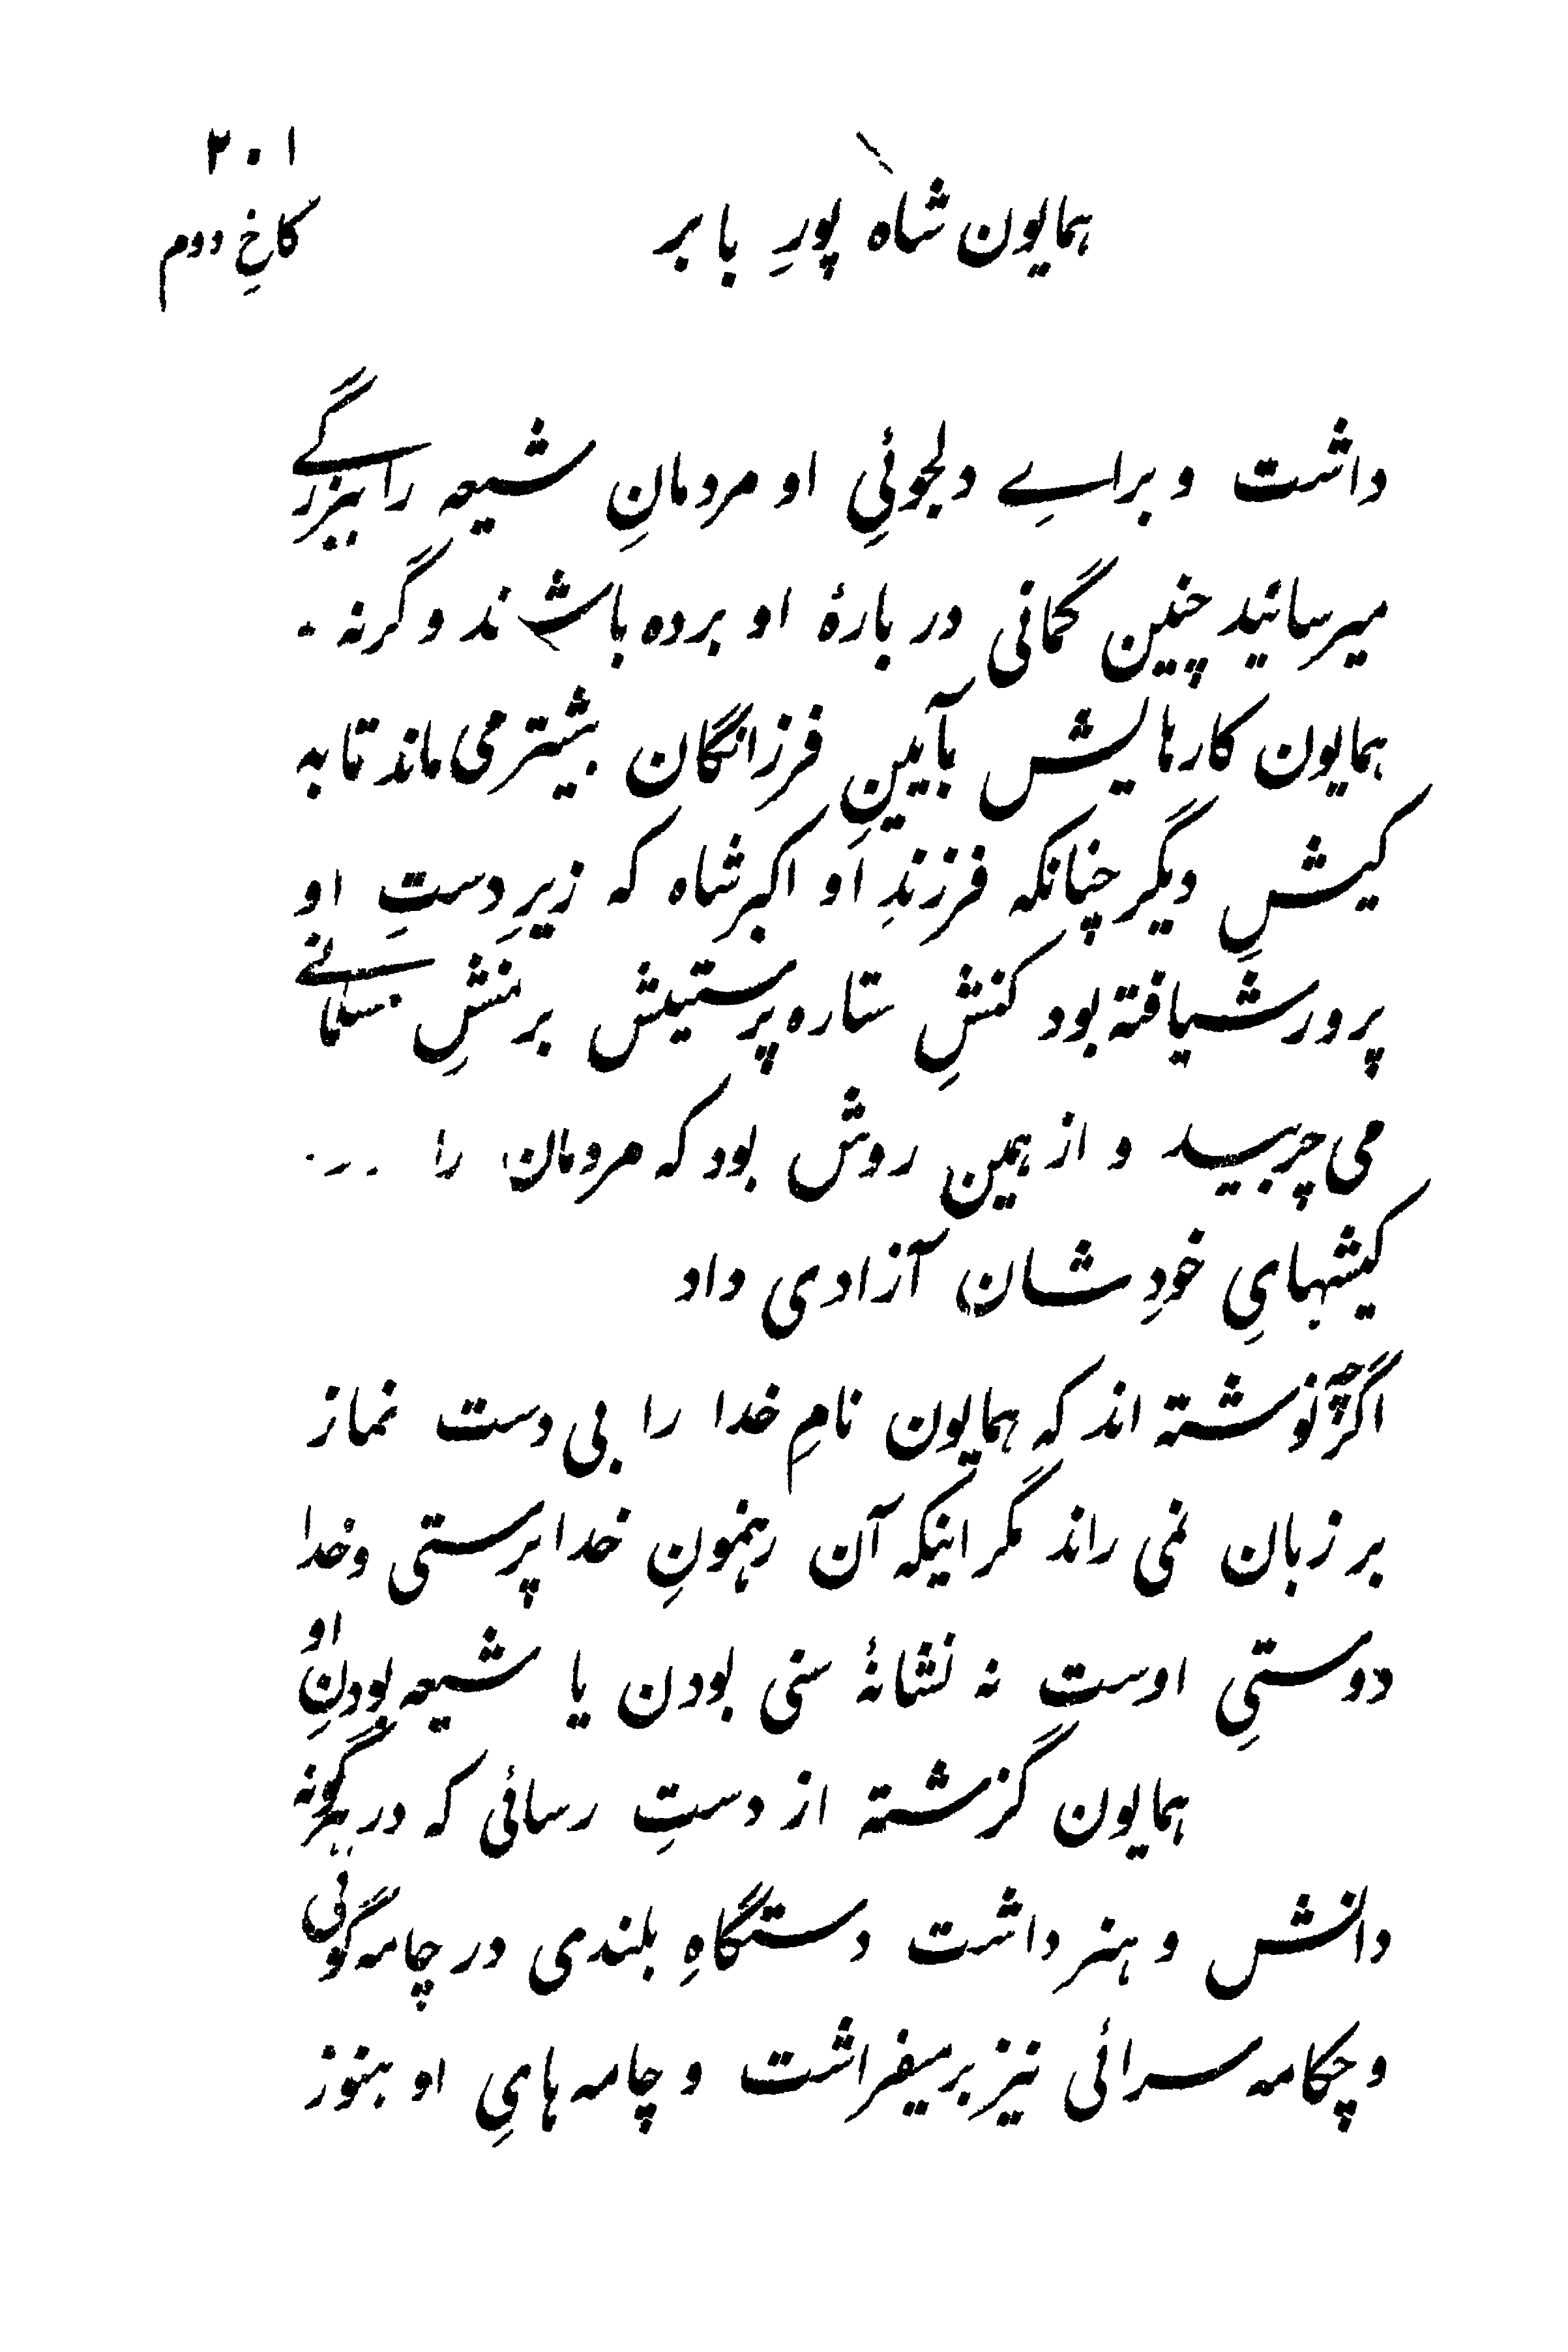 ۲۰۱
همایون شاه پورِ بابر
کاخِ دوم
داشت و براے دلجوئیِ او مردمانِ شیعہ را ببزرگے
میرسانید چنین گمانی در بارهٔ او برده باشند و گرنه ۰
همایون کارهایش بآیینِ فرزانگان بیشتر می ماند تا به
کیشِ دیگر چنانکه فرزندِ او اکبر شاه که زیرِ دستِ او
پرورش یافته بود کنشِ ستاره پرستیش بر منشِ مسلمانے
می چربید و از همین روش بود که مردمان را ۰-۰۰
کیشهایِ خودِ شان آزادی داد
اگرچه نوشته اند که همایون نامِ خدا را بی دست نماز
بر زبان نمی راند مگر اینکه آن رهنمونِ خدا پرستی و خدا
دوستیِ اوست نه نشانهٔ سنی بودن یا شیعہ بودنِ او
همایون گزشته از دستِ رسائی که در هرگونه
دانش و هنر داشت دستگاهِ بلندی در چامه گوئی
و چکامه سرائی نیز بر میفراشت و چامه هایِ او هنوز